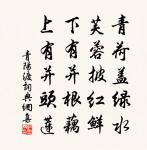 青荷盖绿水
芙蓉披红鲜
下有并根藕
上有并头莲
青阳渡